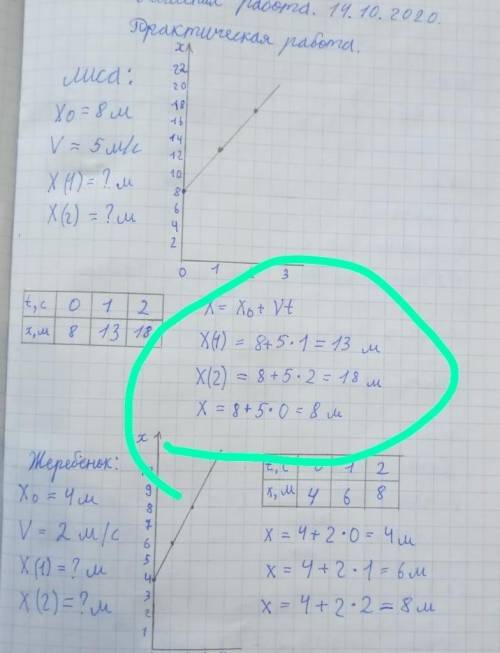 работа. 14.10.2020.
Практическая работа.
Лиса:
X₀ = 8 м
V = 5 м/с
X(1) = ? м
X(2) = ? м
x
22
20
18
16
14
12
10
8
6
4
2
0 1 2 3
t, с 0 1 2
x, м 8 13 18
X = X₀ + Vt
X(1) = 8 + 5 · 1 = 13 м
X(2) = 8 + 5 · 2 = 18 м
X = 8 + 5 · 0 = 8 м
Жеребёнок:
X₀ = 4 м
V = 2 м/с
X(1) = ? м
X(2) = ? м
x
9
8
7
6
5
4
3
2
1
t, с 0 1 2
x, м 4 6 8
x = 4 + 2 · 0 = 4 м
x = 4 + 2 · 1 = 6 м
x = 4 + 2 · 2 = 8 м